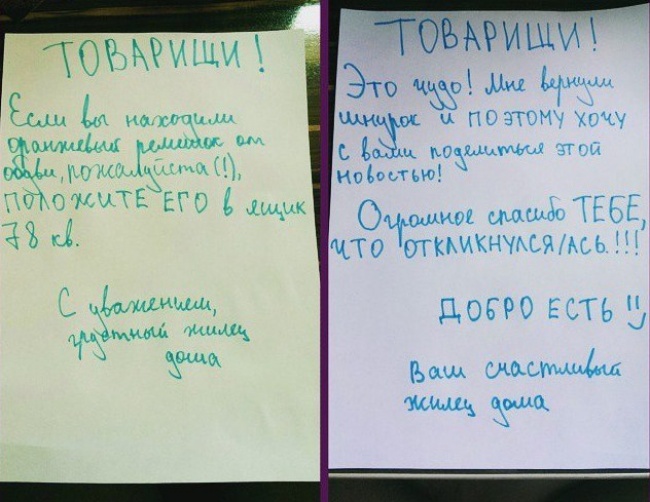 ТОВАРИЩИ!
Если вы находили
оранжевый ремешок от
обуви, пожалуйста(!),
ПОЛОЖИТЕ ЕГО в ящик
78 кв.
С уважением,
грустный жилец
дома
ТОВАРИЩИ!
Это чудо! Мне вернули
шнурок и ПОЭТОМУ ХОЧУ
с вами поделиться этой
новостью!
Огромное спасибо ТЕБЕ,
ЧТО ОТКЛИКНУЛСЯ/АСЬ.!!!
ДОБРО ЕСТЬ!!
Ваш счастливый
жилец дома